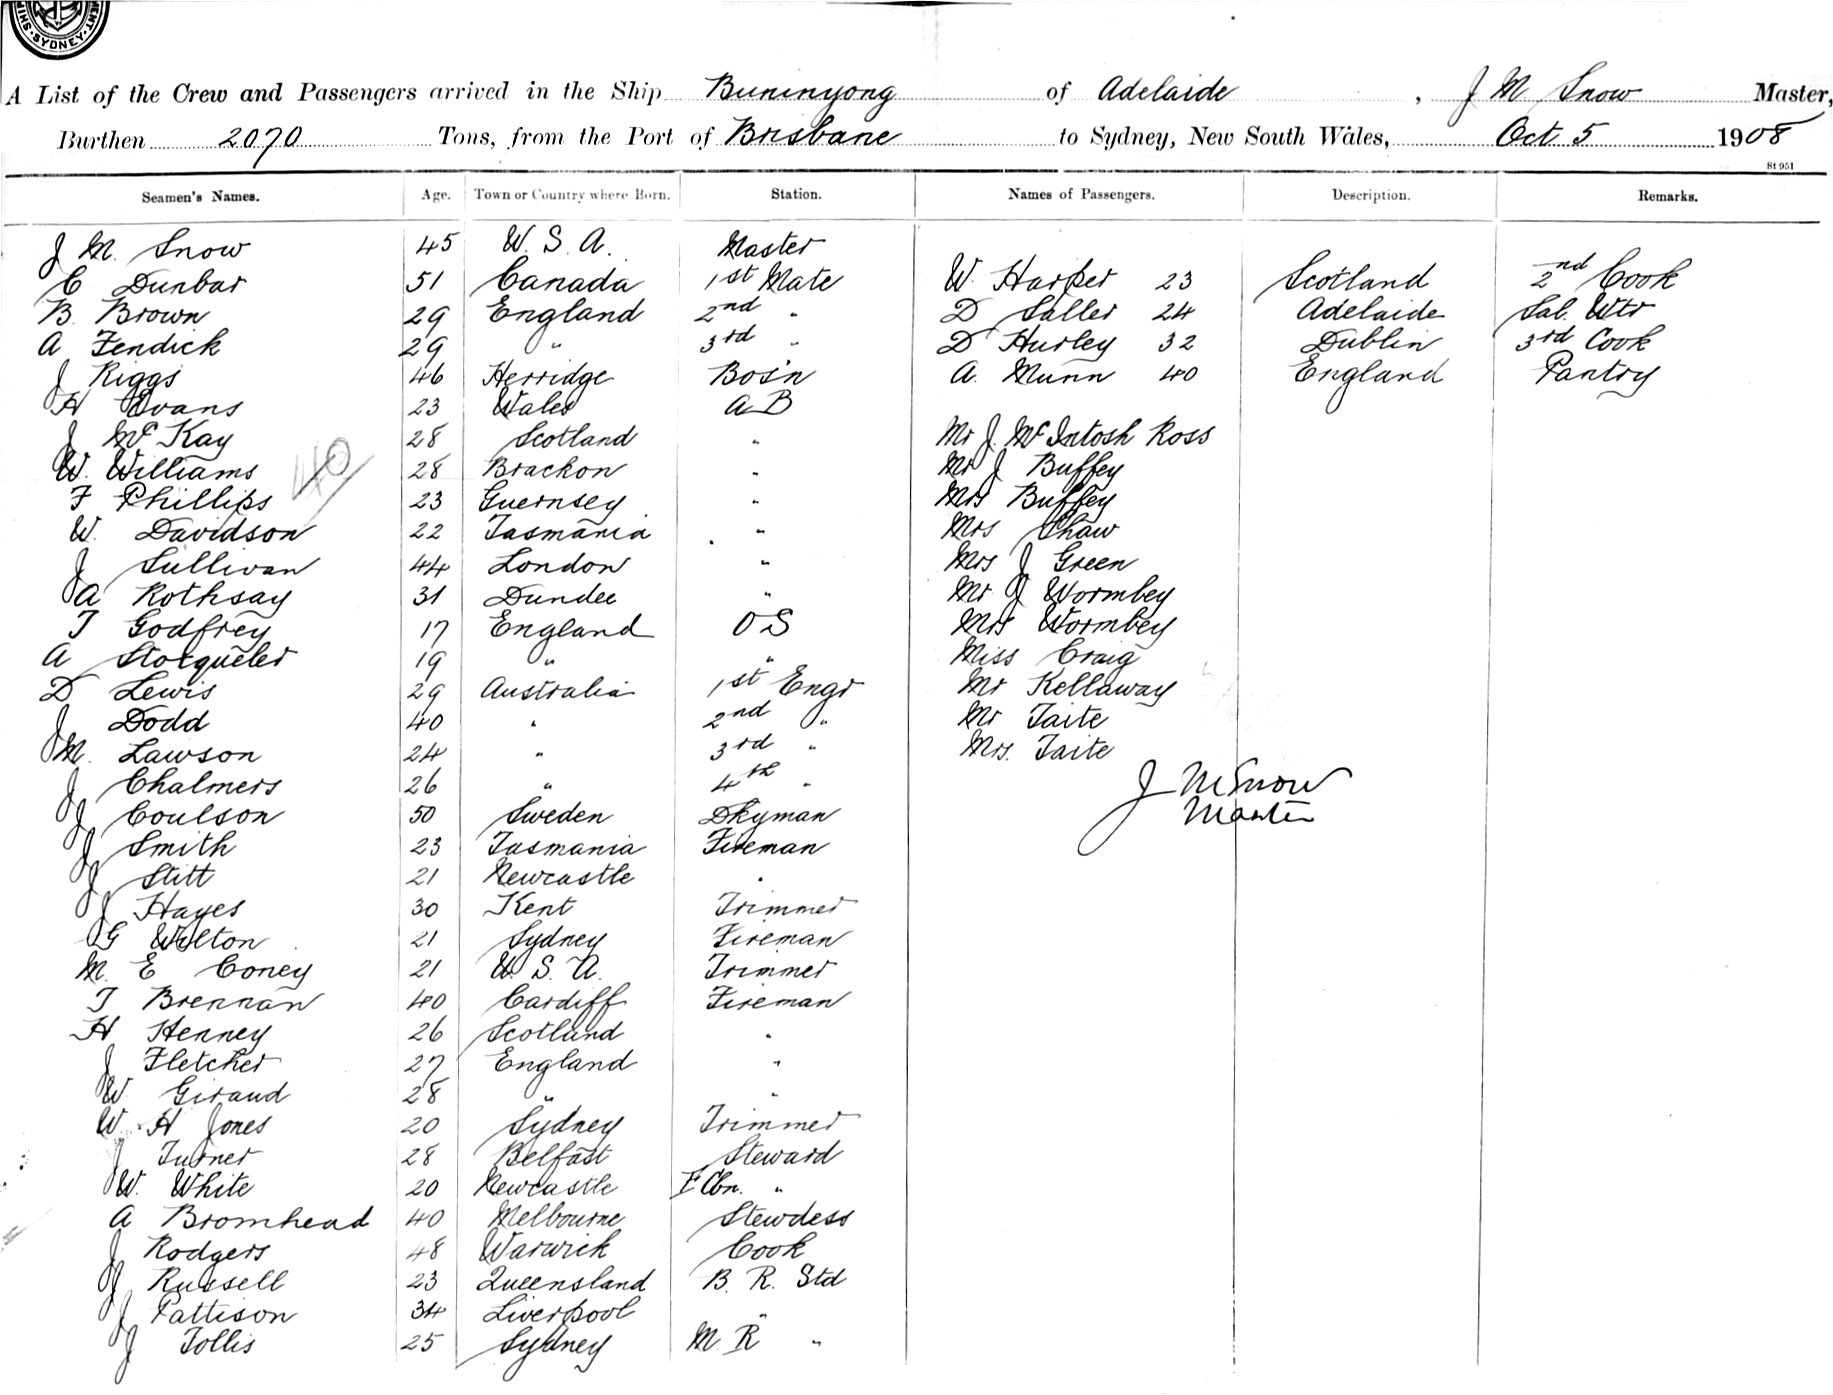 MENT. SYDNEY. SHIP
A List of the Crew and Passengers arrived in the Ship Buninyong of Adelaide, J M Snow Master,
Burthen 2070 Tons, from the Port of Brisbane to Sydney, New South Wales, Oct 5 1908
St 951
Seamen's Names. Age. Town or Country where Born. Station. Names of Passengers. Description. Remarks.
J M. Snow 45 U. S. A. Master
C Dunbar 51 Canada 1st Mate W. Harper 23 Scotland 2nd Cook
B. Brown 29 England 2nd " D Saller 24 Adelaide Sal. Wtr
A Fendick 29 " 3rd " D Hurley 32 Dublin 3rd Cook
J Riggs 46 Herridge Bos'n A. Munn 40 England Pantry
H Evans 23 Wales A B
J McKay 28 Scotland " Mr J. McIntosh Ross
W. Williams 40 28 Brackon " Mr J Buffey
F Phillips 23 Guernsey " Mrs Buffey
W. Davidson 22 Tasmania " Mrs Shaw
J Sullivan 44 London " Mrs J Green
A Rothsay 31 Dundee " Mr J Wormbey
T Godfrey 17 England O S Mrs Wormbey
A Stocqueler 19 " " Miss Craig
D Lewis 29 Australia 1st Engr Mr Kellaway
J Dodd 40 " 2nd " Mr Taite
M. Lawson 24 " 3rd " Mrs. Taite
J Chalmers 26 " 4th " J M Snow
J Coulson 50 Sweden Dkyman Master
J Smith 23 Tasmania Fireman
J Stitt 21 Newcastle "
J Hayes 30 Kent Trimmer
G Wilton 21 Sydney Fireman
M. E Coney 21 U. S. A. Trimmer
T Brennan 40 Cardiff Fireman
H Henney 26 Scotland "
J Fletcher 27 England "
W. Giraud 28 " "
W. H Jones 20 Sydney Trimmer
J Turner 28 Belfast Steward
W. White 20 Newcastle F Cbn. "
A Bromhead 40 Melbourne Stewdess
J Rodgers 48 Warwick Cook
J Russell 23 Queensland B. R. Std
J Pattison 34 Liverpool "
J Tollis 25 Sydney M R "